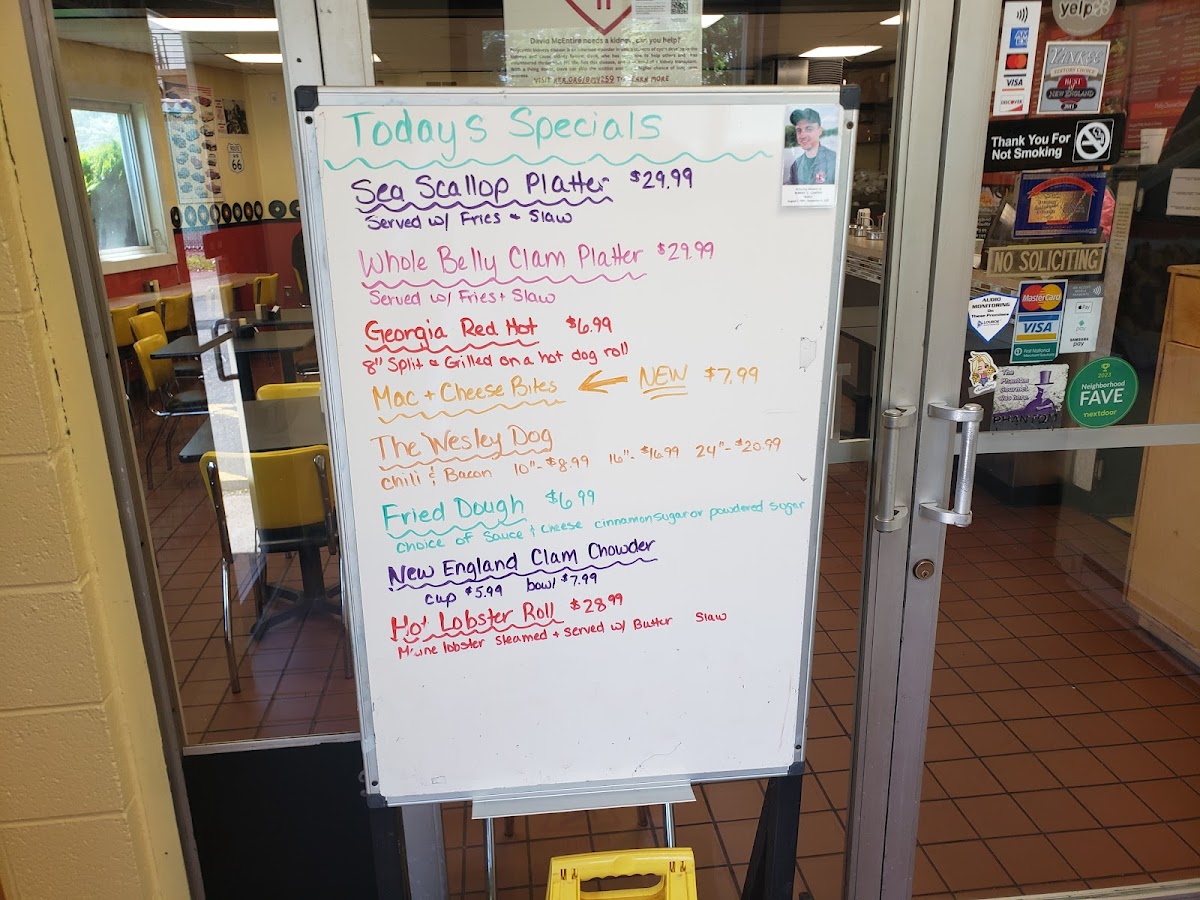 David McEntire needs a kidney, can you help?
Today's Specials
Sea Scallop Platter $29.99
Served w/ Fries & Slaw
Whole Belly Clam Platter $29.99
Served w/ Fries + Slaw
Georgia Red Hot $6.99
8" Split & Grilled on a hot dog roll
Mac + Cheese Bites ← NEW $7.99
The Wesley Dog
Chili & Bacon 10"- $8.99 16"- $16.99 24"- $20.99
Fried Dough $6.99
Choice of Sauce & Cheese cinnamon sugar or powdered sugar
New England Clam Chowder
cup $5.99 bowl $7.99
Hot Lobster Roll $28.99
Maine lobster Steamed + Served w/ Butter Slaw
ROUTE
66
yelp
AM
EX
VISA
mastercard
DISCOVER
YANKEE
BEST of
NEW ENGLAND
Thank You For
Not Smoking
NO SOLICITING
AUDIO
MONITORING
On These Premises
MasterCard
VISA
First National
Merchant Solutions
Apple Pay
pay
SAMSUNG
pay
The
Phantom
Gourmet
was here.
PHANTOM
2023
Neighborhood
FAVE
nextdoor